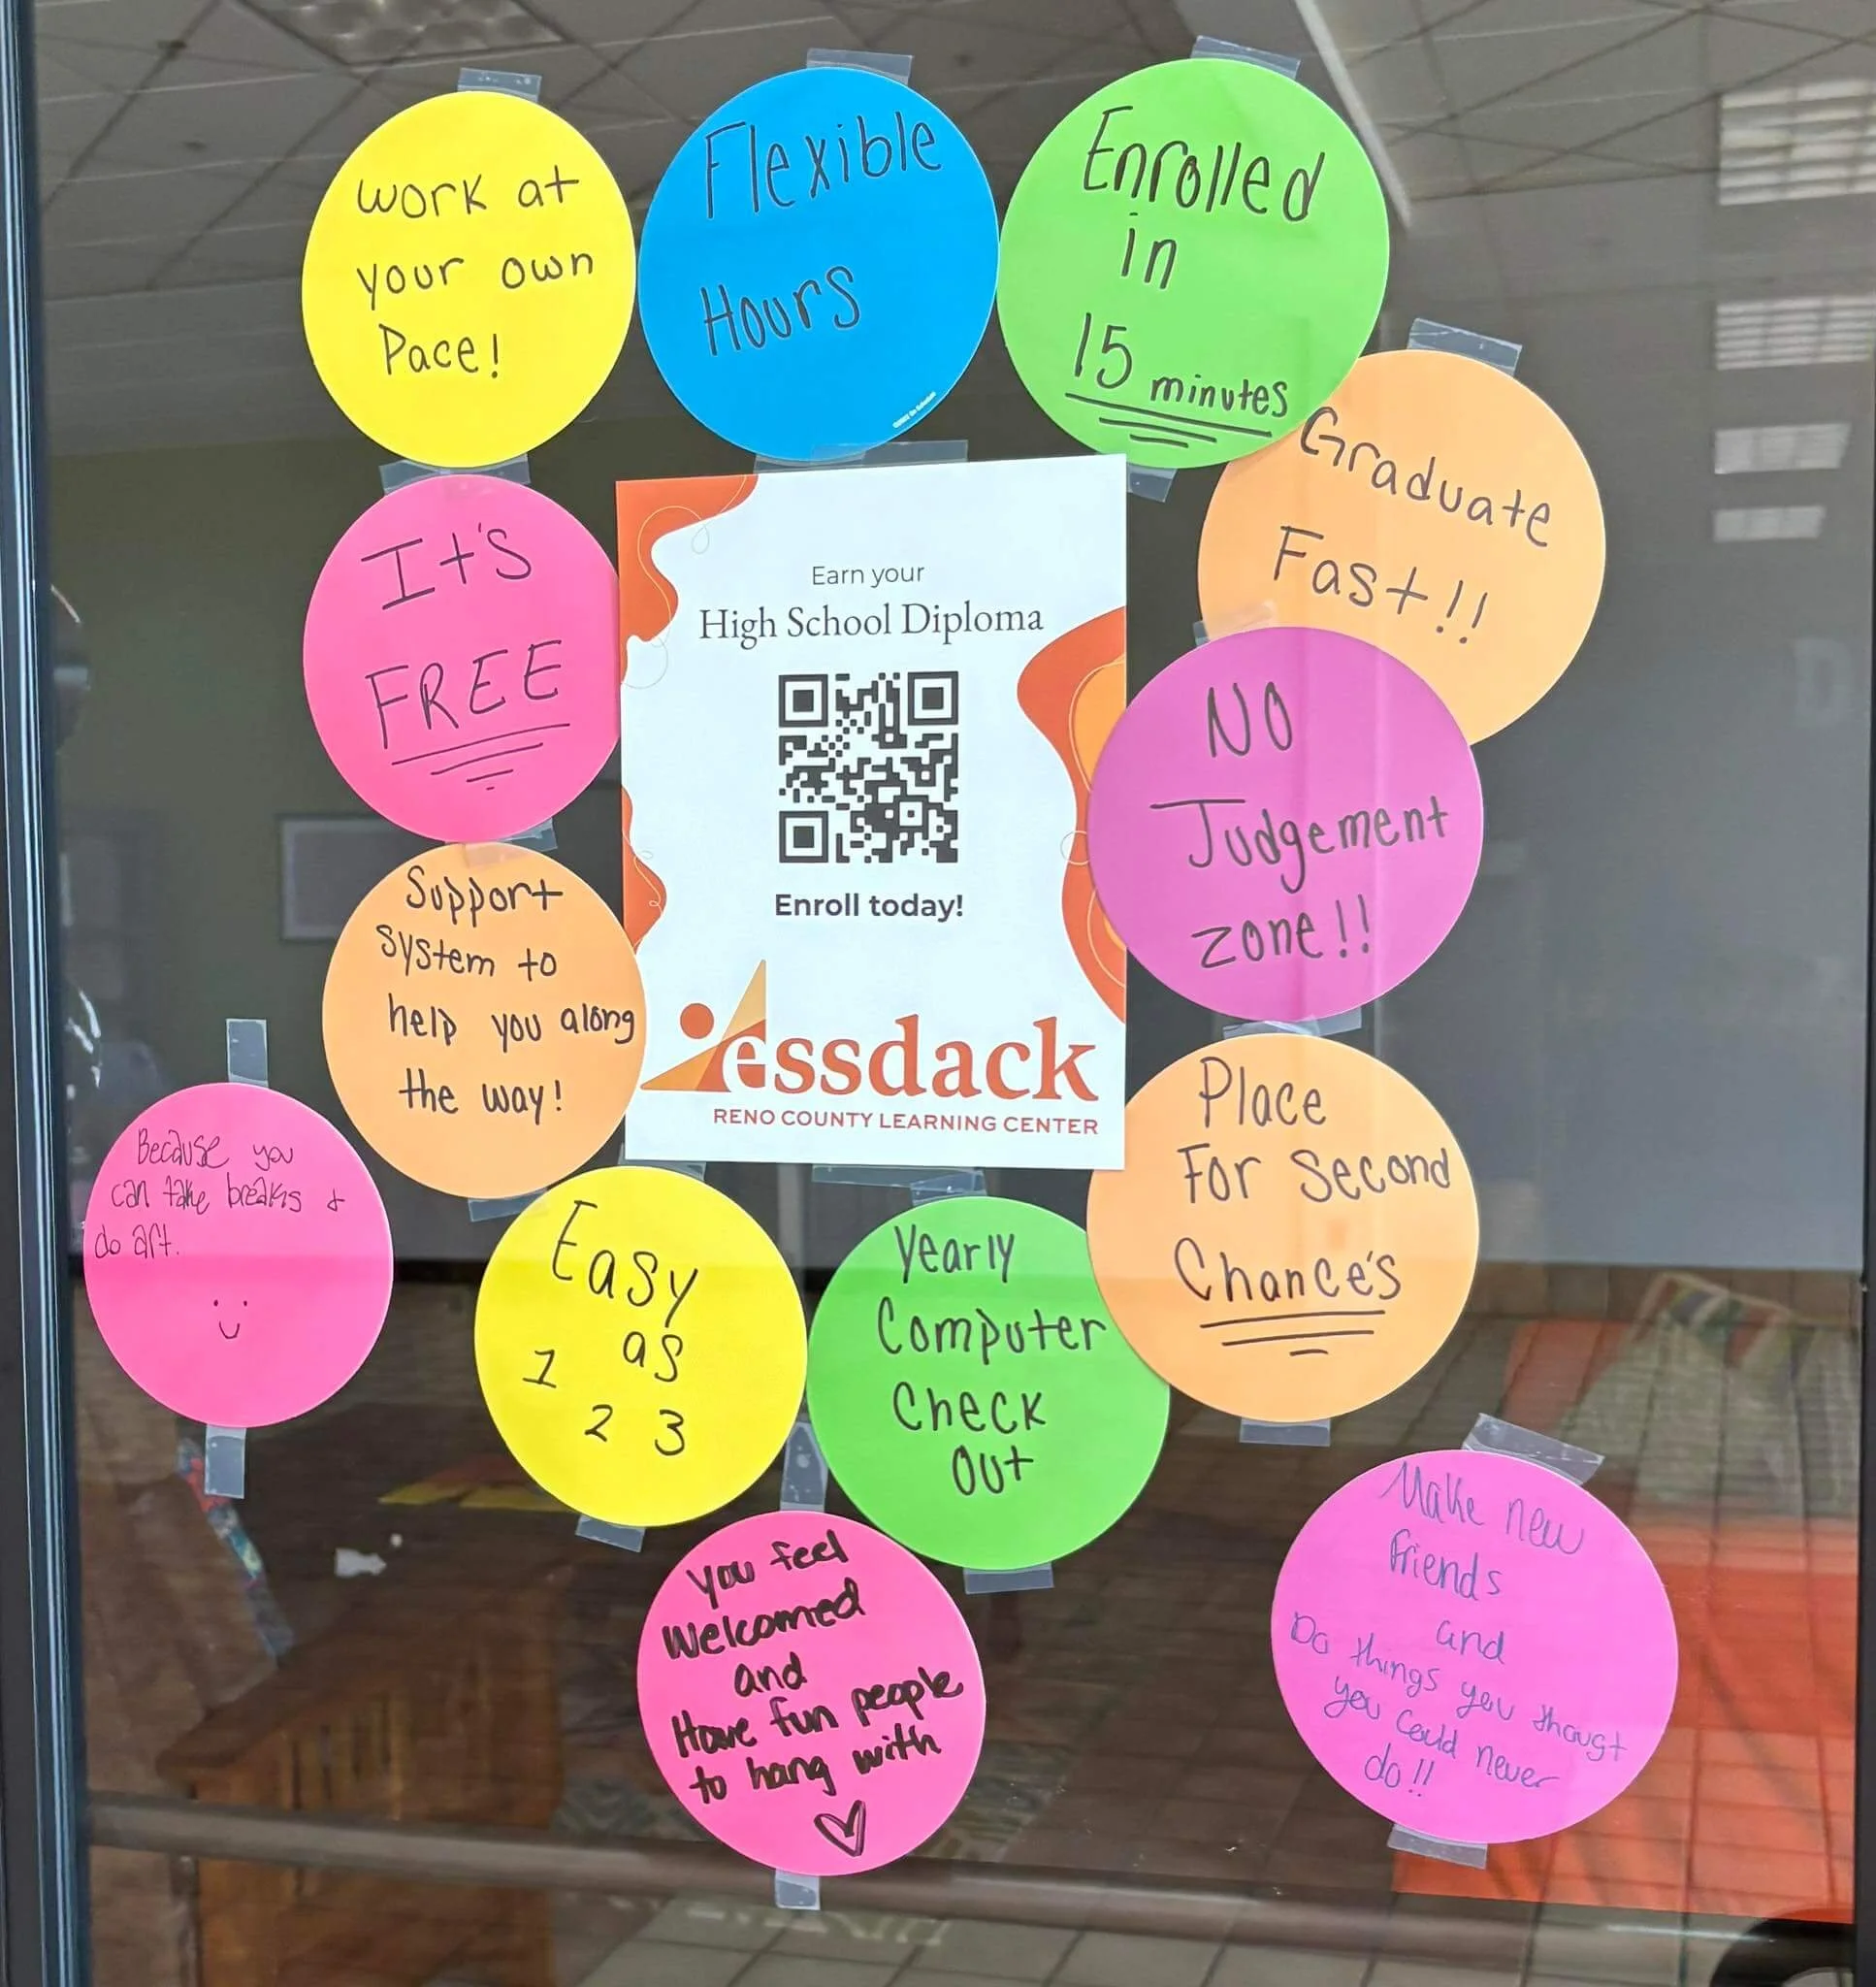 work at
your own
Pace!
Flexible
Hours
Enrolled
in
15 minutes
Graduate
Fast!!
It's
FREE
Earn your
High School Diploma
Enroll today!
essdack
RENO COUNTY LEARNING CENTER
NO
Judgement
zone!!
Support
system to
help you along
the way!
Place
For Second
Chance's
Because you
can take breaks &
do art.
Easy
as
1
2 3
Yearly
Computer
Check
Out
You feel
Welcomed
and
Have fun people
to hang with
Make new
friends
and
Do things you thougt
you could never
do!!